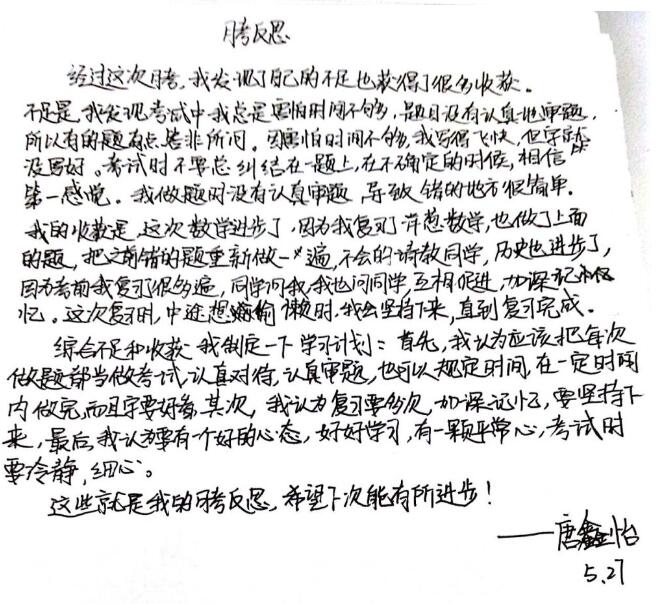 月考反思
经过这次月考,我发现了自己的不足也获得了很多收获。
不足是,我发现考试中我总是害怕时间不够,题目没有认真地审题,
所以有的题有点答非所问。因害怕时间不够,我写得飞快,但字就
没写好。考试时不要总纠结在一题上,在不确定的时候,相信
第一感觉。我做题时没有认真审题,导致错的地方很简单.
我的收获是,这次数学进步了,因为我复习了数学,也做了上面
的题,把之前错的题重新做一遍,不会的请教同学,历史也进步了,
因为考前我复习了很多遍,同学问我,我也问同学,互相促进,加深记
忆。这次复习时,中途想偷懒时,我会坚持下来,直到复习完成。
综合不足和收获 我制定一下学习计划:首先,我认为应该把每次
做题都当做考试,认真对待,认真审题,也可以规定时间,在一定时间
内做完,而且字要好看,其次,我认为复习要多次,加深记忆,要坚持下
来,最后,我认为要有个好的心态,好好学习,有一颗平常心,考试时
要冷静,细心。
这些就是我的月考反思,希望下次能有所进步!
——唐鑫怡
5.27